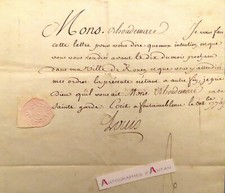 Mons. Oboudemare Je vous fais
cette lettre pour vous dire que mon intention est que
vous vous rendiez avant le dix du mois prochain
dans ma Ville de Rouen et que vous y attendiez
mes ordres. la presente n'etant a autre fin, je prie
Dieu qu'il vous ait Mons. Oboudemare en sa
Sainte garde. Ecrit a fontainebleau le
Louis
AUTOGRAPHES